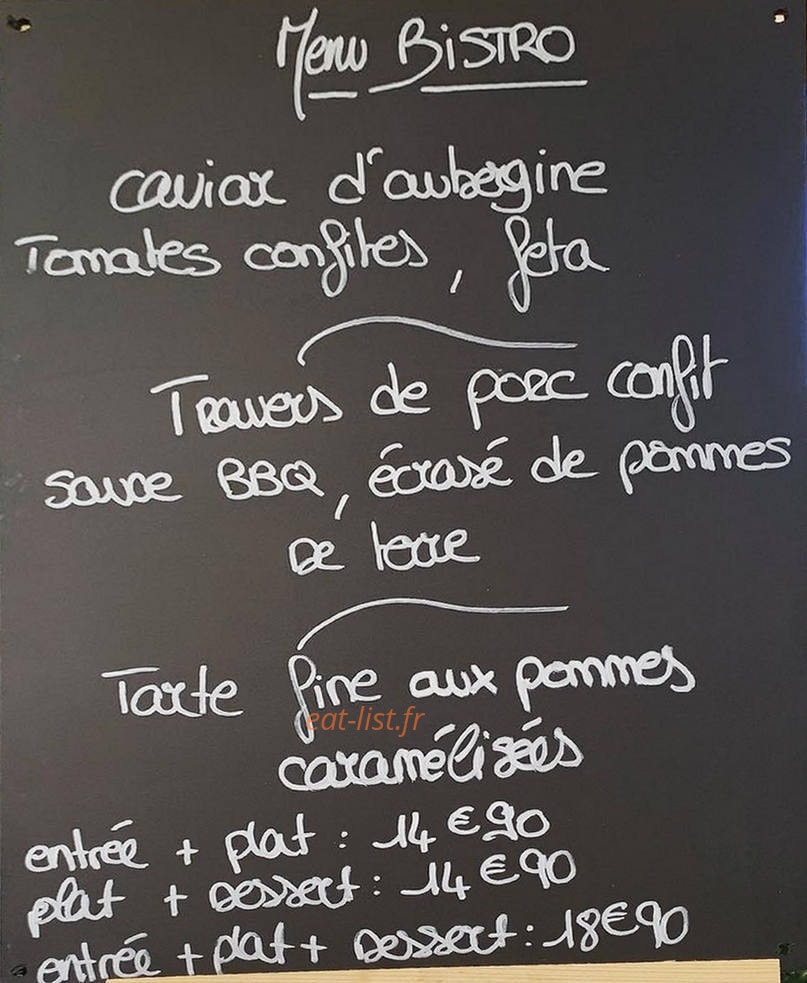 Menu BISTRO
caviar d'aubergine
Tomates confites, feta
Travers de porc confit
sauce BBQ, écrasé de pommes
De terre
Tarte fine aux pommes
eat-list.fr
caramélisées
entrée + plat : 14€90
plat + Dessert : 14€90
entrée + plat + Dessert : 18€90